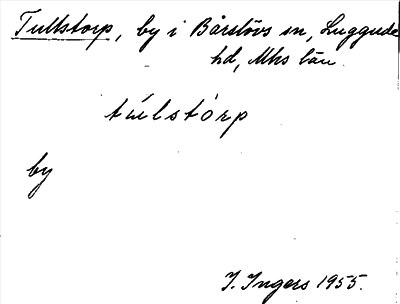 Tullstorp, by i Bårslövs sn, Luggude
hd, Mhs län.
túlstòrp
by
I. Ingers 1955.